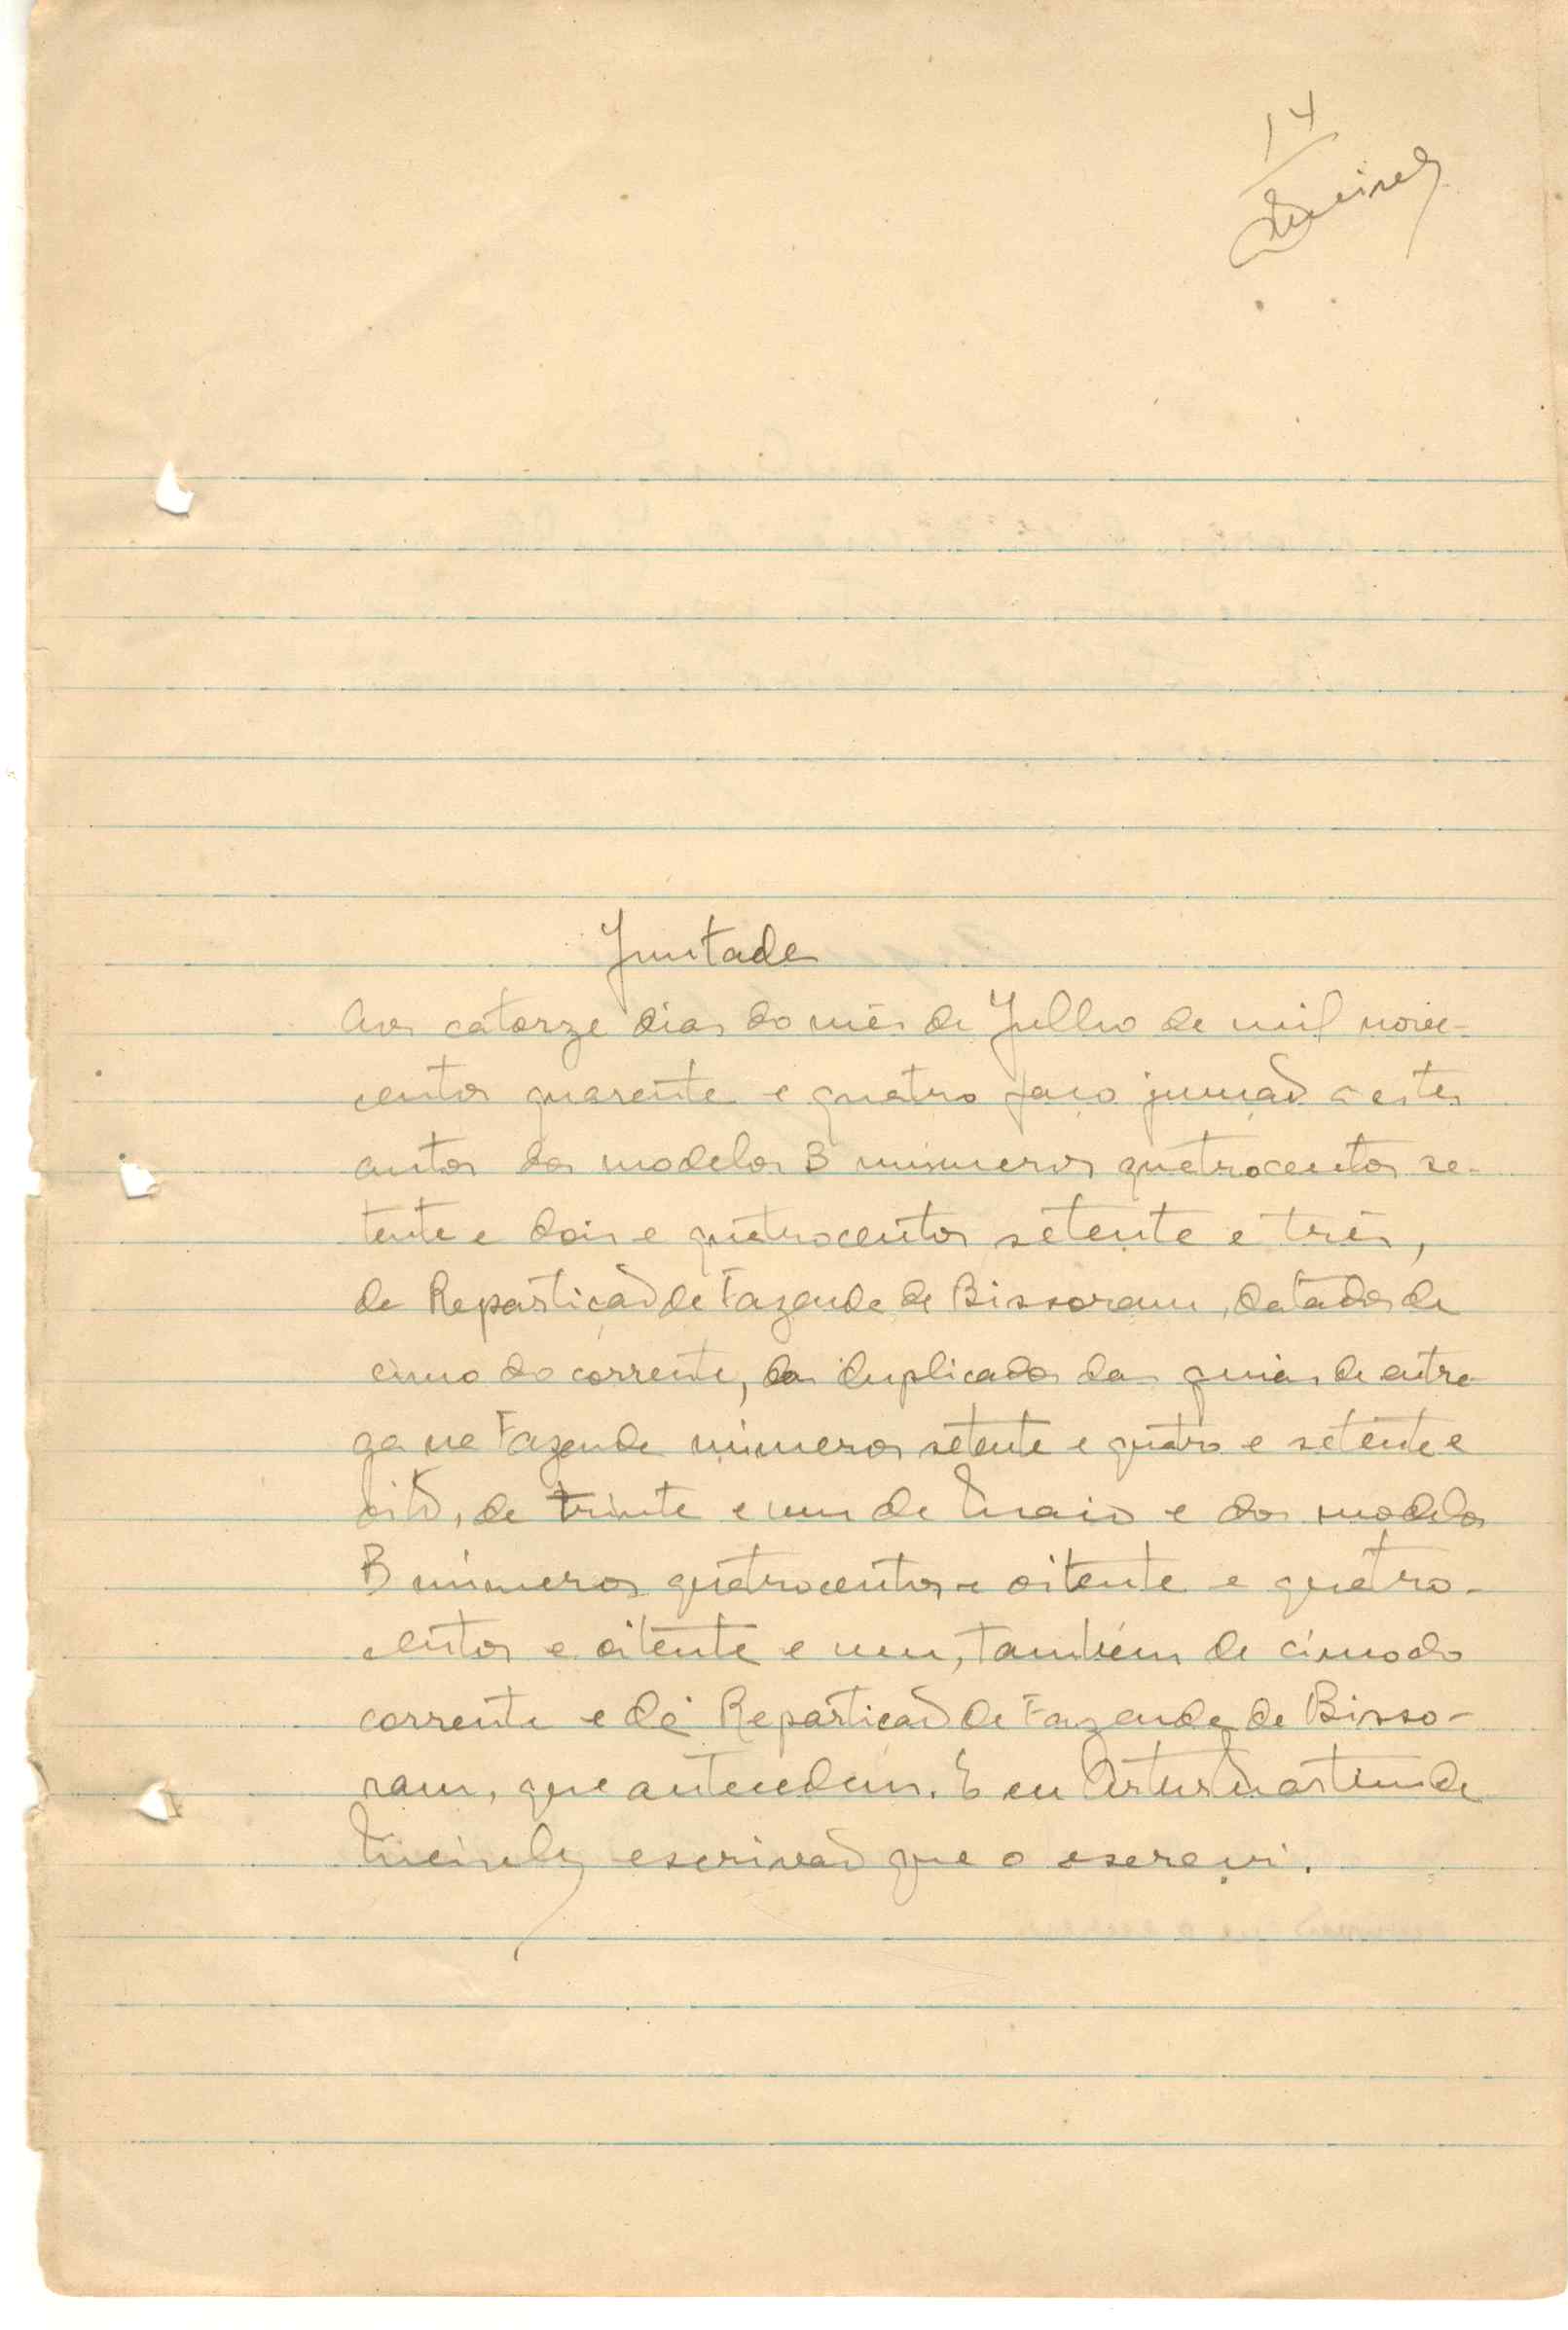 14
Meireles
Juntada
Aos catorze dias do mês de Julho de mil nove-
centos quarenta e quatro faço junção a estes
autos dos modelos B números quatrocentos se-
tenta e dois e quatrocentos setenta e três,
da Repartição de Fazenda de Bissoram, datados de
cinco do corrente, dos duplicados das guias de entre
ga na Fazenda números setenta e quatro e setenta e
oito, de trinta e um de Maio e dos modelos
B números quatrocentos e oitenta e quatro-
centos e oitenta e um, também de cinco do
corrente e da Repartição de Fazenda de Bisso-
ram, que antecedem. E eu Artur Martins de
Meireles escrivão que o escrevi.